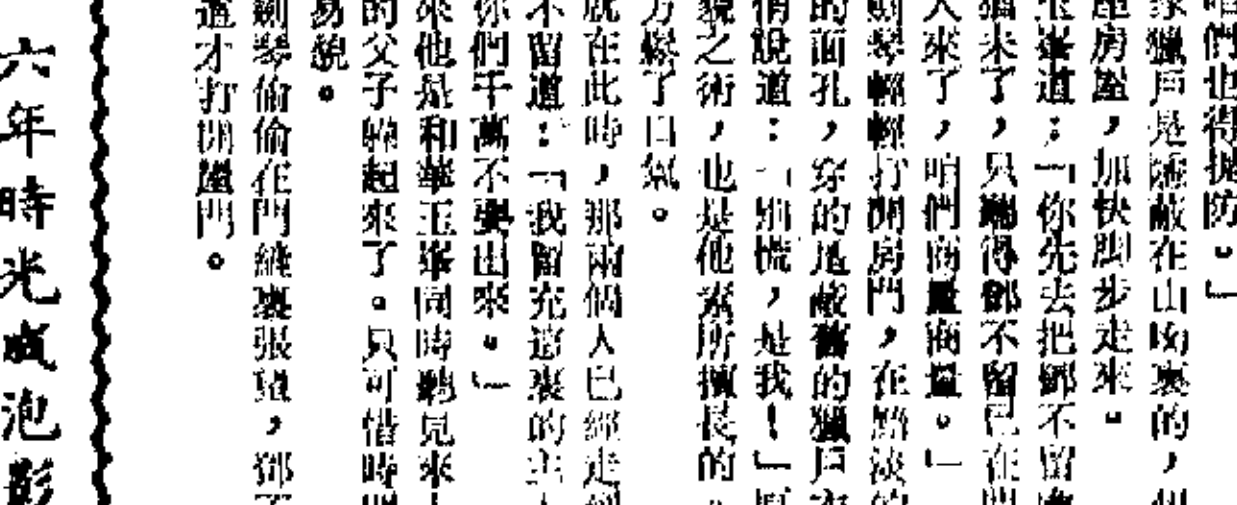 咱們也得提防。」
家獵戶是隱蔽在山坳裏的，但
座房屋，加快脚步走來。
玉峯道：「你先去把鄧不留
猶未了，只聽得鄧不留已在門
人來了，咱們商量商量。」
劍琴輕輕打開房門，在黯淡的
的面孔，穿的是蔽舊的獵戶衣
悄說道：「別慌，是我！」原
貌之術，也是他素所擅長的。
方鬆了口氣。
就在此時，那兩個人已經走到
不留道：「我留充這裏的主人
你們千萬不要出來。」
來他是和華玉峯同時聽見來
的父子躲起來了。只可惜時間
易貌。
劍琴偷偷在門縫裏張望，鄧不
道才打開屋門。
六年時光成泡影